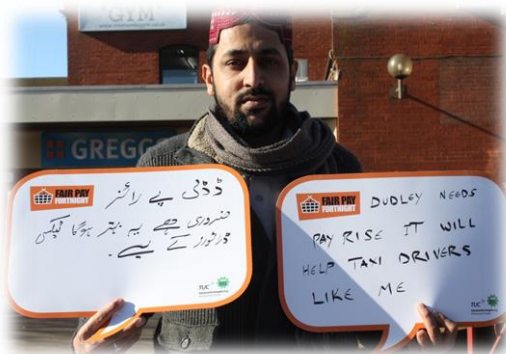 GYM
GREGGS
FAIR PAY
FORTNIGHT
ڈڈلی پے رائز
ضروری ہے یہ بہتر ہوگا ٹیکسی
ڈرائیورز کے لیے۔
TUC
FAIR PAY
FORTNIGHT
DUDLEY NEEDS
PAY RISE IT WILL
HELP TAXI DRIVERS
LIKE ME
TUC